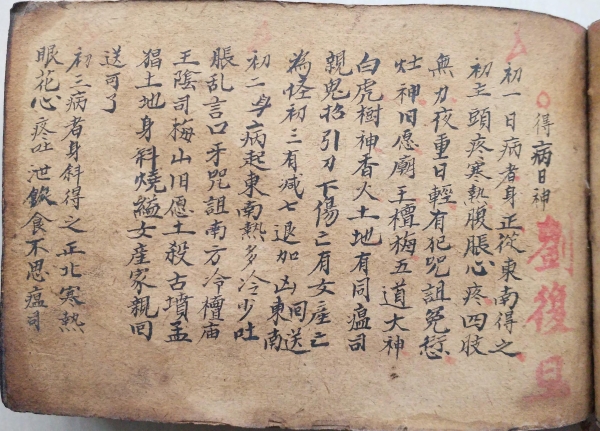 劉復旦
得病日神
初一日病者身正從東南得之
初主頭疼寒熱腹脹心疼四肢
無力夜重日輕有犯咒詛冤愆
灶神旧愿廟王檀梅五道大神
白虎樹神香火土地有同瘟司
親鬼招引刀下傷亡有女産亡
為怪初三有减七退加凶東南回送
初二身病起東南熱多冷少吐
脹乱言口牙咒詛南方冷檀庙
王陰司梅山旧愿土殺古墳孟
猖土地身科燒縊女産家親回
送可了
初三病者身斜得之正北寒熱
眼花心疼吐泄飲食不思瘟司